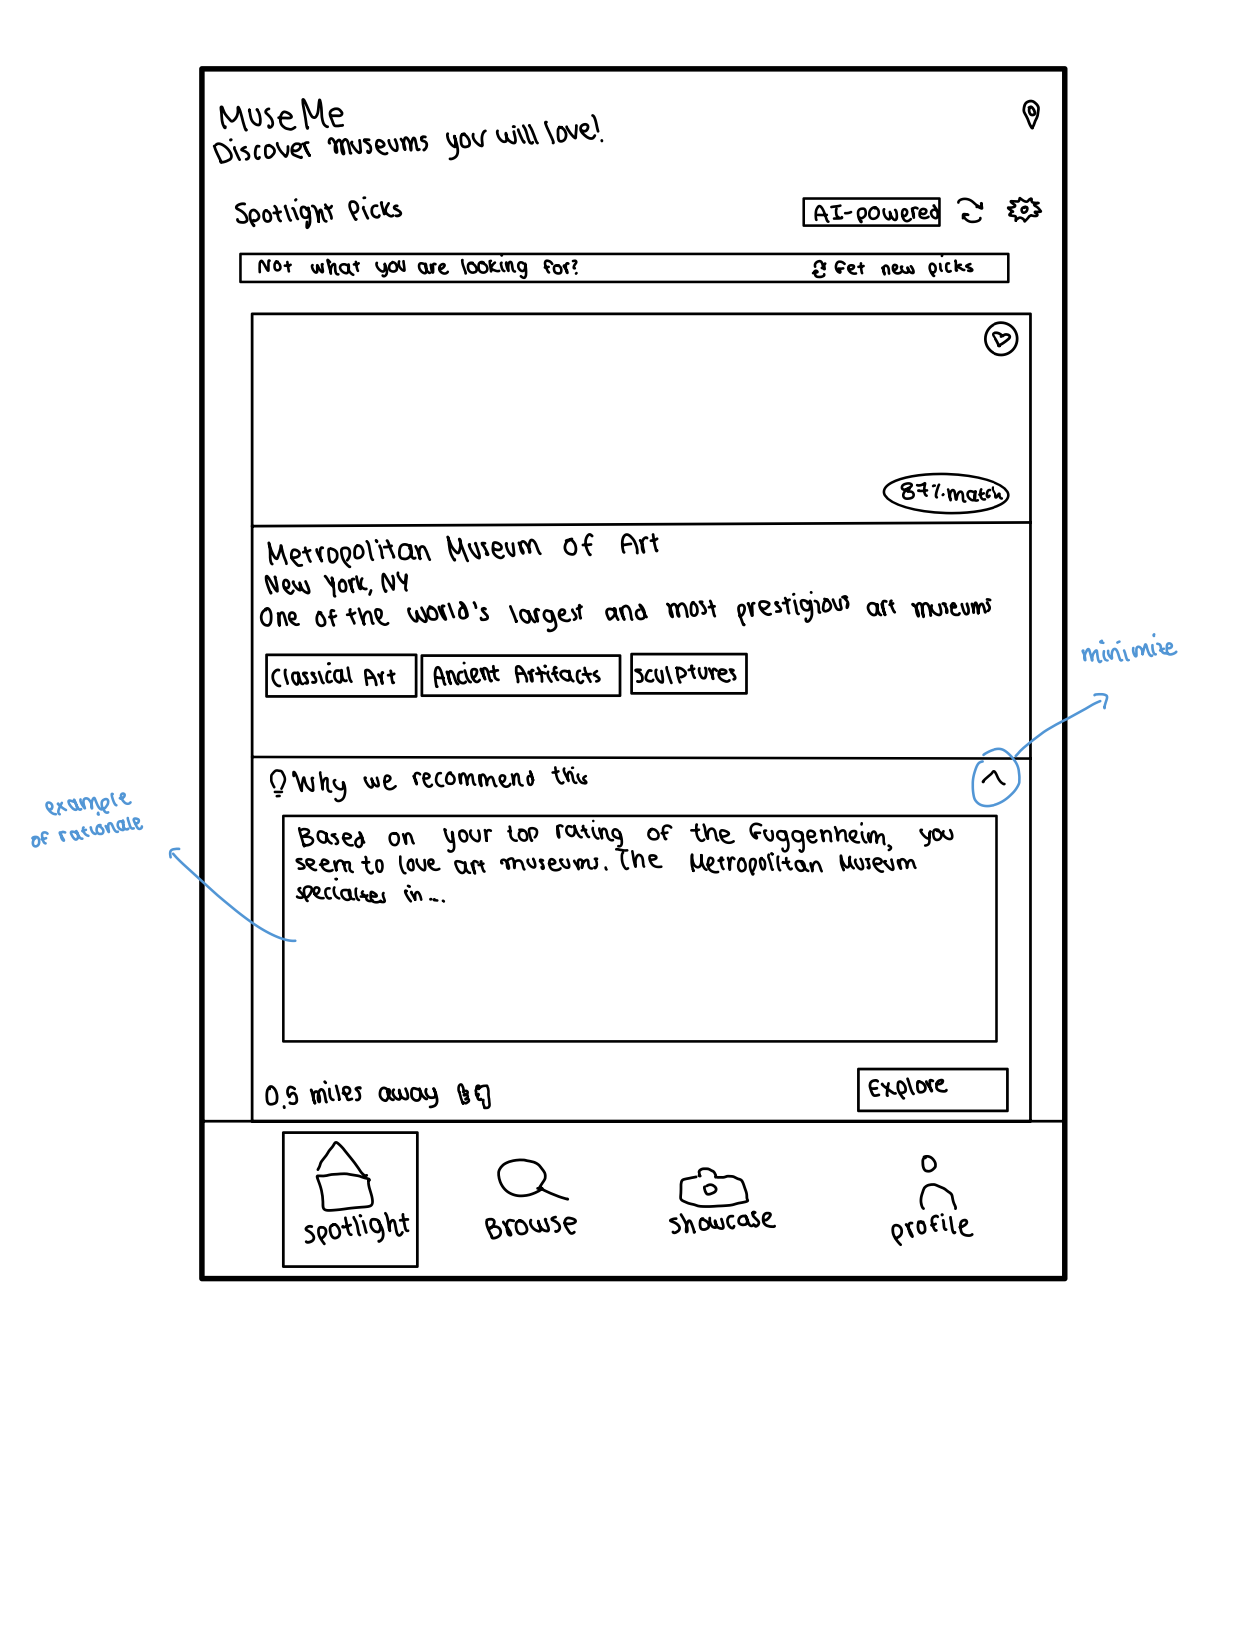 MuseMe
Discover museums you will love!
Spotlight Picks
AI-powered
Not what you are looking for?
Get new picks
87% match
Metropolitan Museum of Art
New York, NY
One of the world's largest and most prestigious art museums
minimize
Classical Art
Ancient Artifacts
Sculptures
Why we recommend this
example
of rationale
Based on your top rating of the Guggenheim, you
seem to love art museums. The Metropolitan Museum
in...
0.5 miles away
Explore
Spotlight
Browse
Showcase
profile